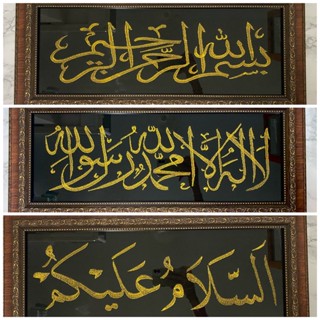 بسم الله الرحمن الرحيم
لا اله الا الله محمد رسول الله
اَلسَّلَامُ عَلَيْكُمْ